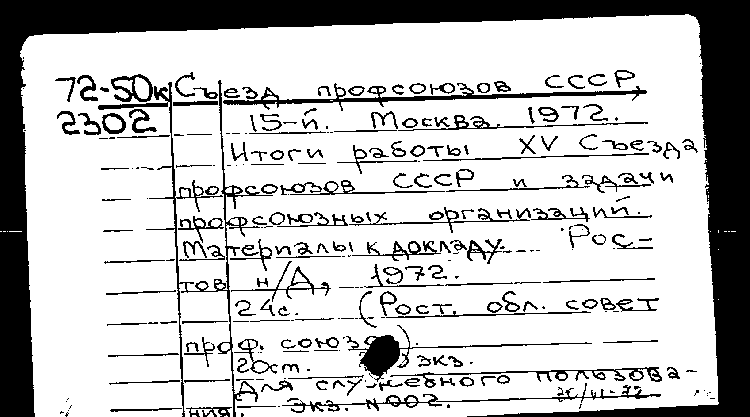 72-50к Съезд профсоюзов СССР,
2302 15-й. Москва. 1972.
Итоги работы XV Съезда
профсоюзов СССР и задачи
профсоюзных организаций.
Материалы к докладу. Рос-
тов н/Д, 1972.
24с. (Рост. обл. совет
проф. союзо).
20см. экз.
Для служебного пользова-
ния. Экз. №002.